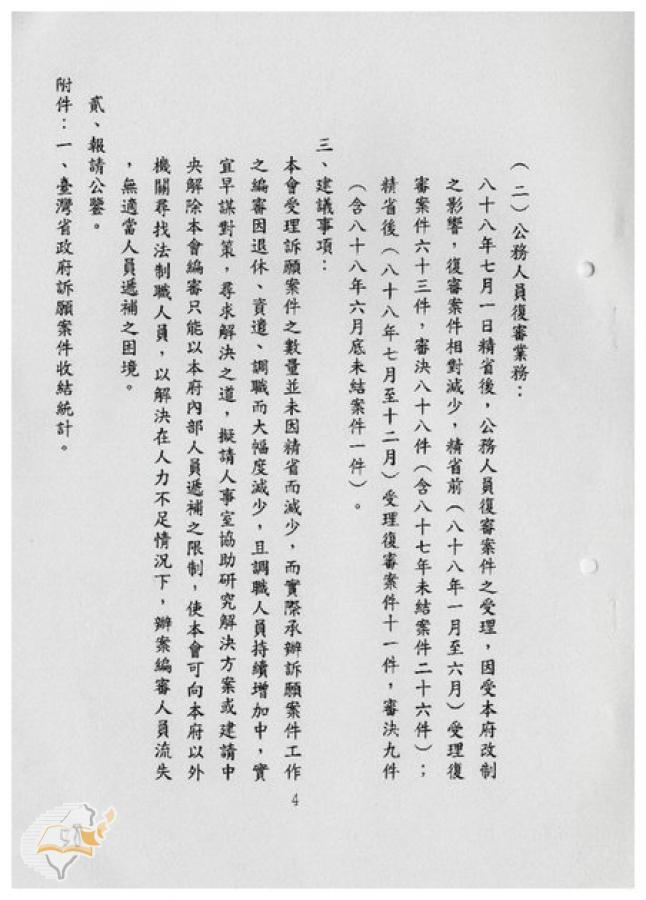 (二)公務人員復審業務：
八十八年七月一日精省後，公務人員復審案件之受理，因受本府改制
之影響，復審案件相對減少，精省前(八十八年一月至六月)受理復
審案件六十三件，審決八十八件(含八十七年未結案件二十六件)；
精省後(八十八年七月至十二月)受理復審案件十一件，審決九件
(含八十八年六月底未結案件一件)。
三、建議事項：
本會受理訴願案件之數量並未因精省而減少，而實際承辦訴願案件工作
之編審因退休、資遣、調職而大幅度減少，且調職人員持續增加中，實
宜早謀對策，尋求解決之道，擬請人事室協助研究解決方案或建請中
央解除本會編審只能以本府內部人員遞補之限制，使本會可向本府以外
機關尋找法制職人員，以解決在人力不足情況下，辦案編審人員流失
，無適當人員遞補之困境。
貳、報請公鑒。
附件：一、臺灣省政府訴願案件收結統計。
4